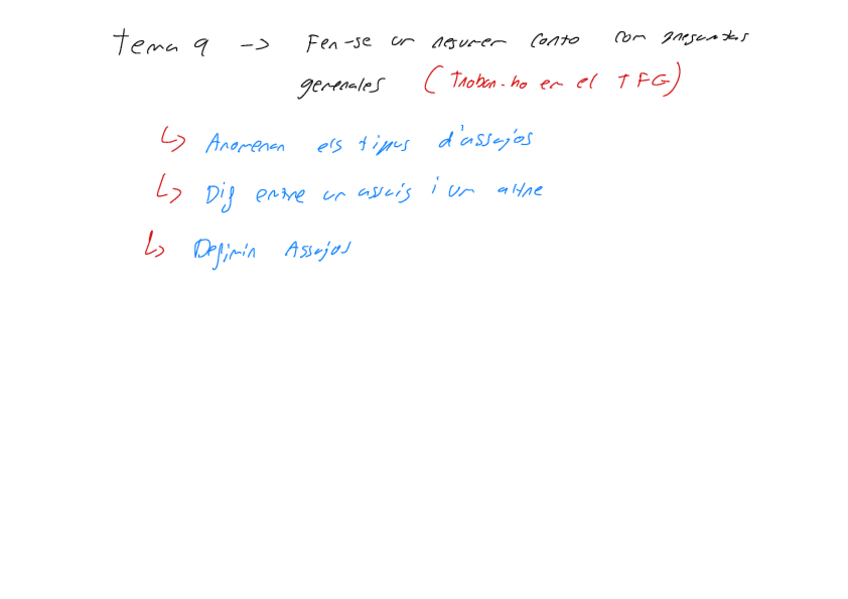 Tema 9 -> Fer-se un resumen conto com preguntas
generales (Trobar-ho en el TFG)
↳ Anomenar els tipus d'assajos
↳ Dif entre un assaig i un altre
↳ Definir Assajos